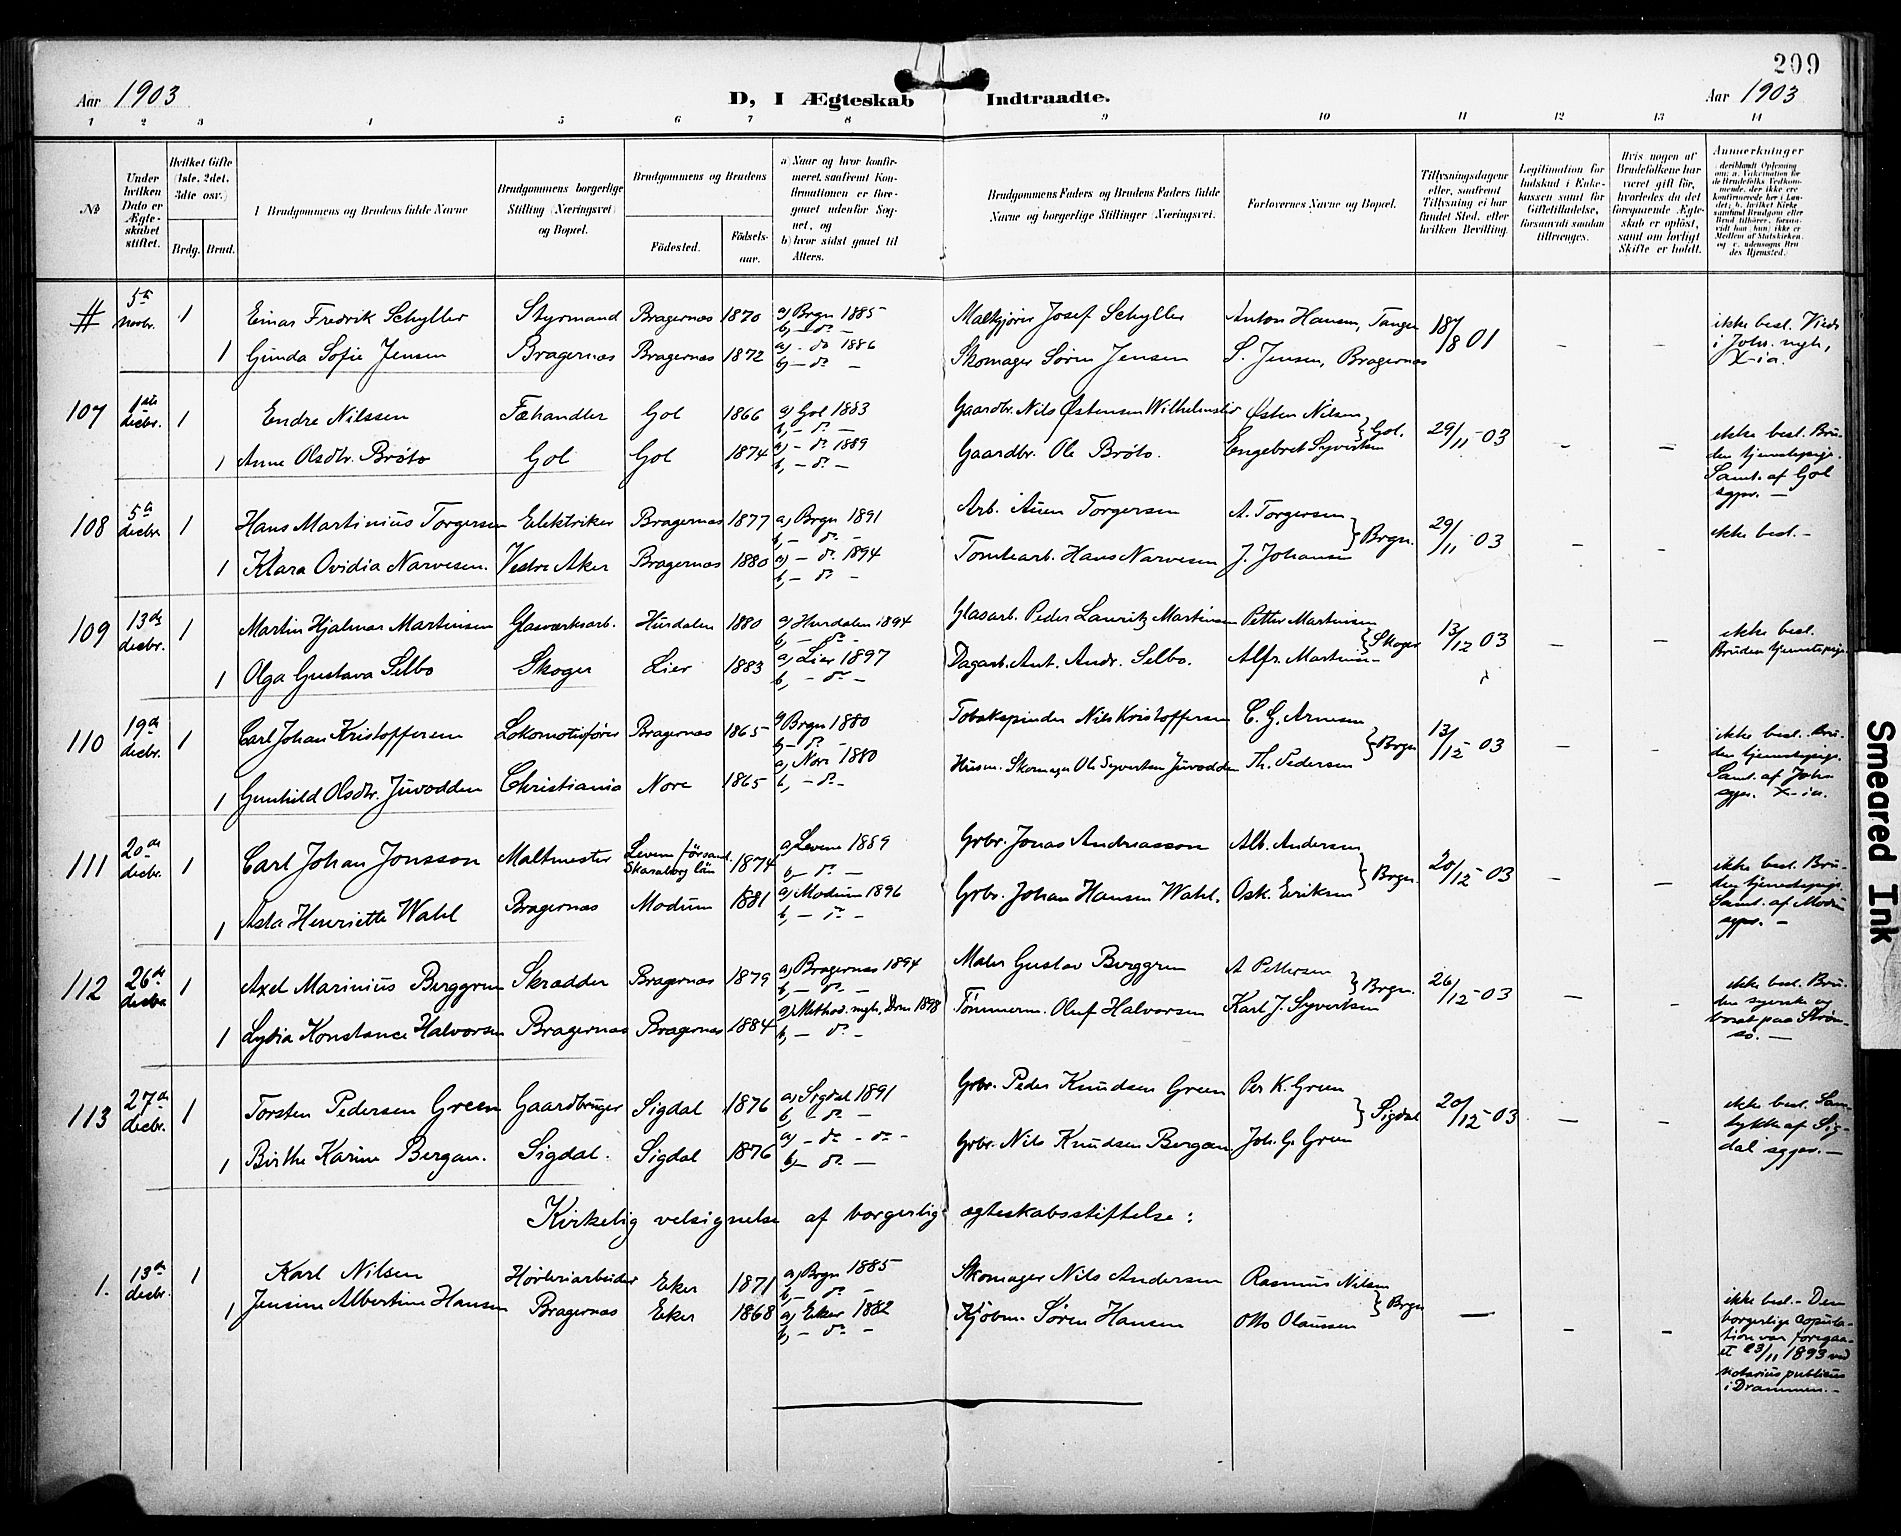 209
Aar 1903 D, I Ægteskab Indtraadte. Aar 1903
1 2 3 4 5 6 7 8 9 10 11 12 13 14
№
Under hvilken Dato er Ægteskabet stiftet.
Hvilket Gifte (1ste, 2det, 3die osv.)
Brdg. Brud.
Brudgommens og Brudens fulde Navne
Brudgommens borgerlige Stilling (Næringsvei) og Bopæl.
Brudgommens og Brudens
Fødested. Fødselsaar.
a) Naar og hvor konfirmeret, samt om Konfirmationen er foregaaet udenfor Sognet, og
b) hvor sidst gaaet til Alters.
Brudgommens Faders og Brudens Faders fulde Navne og borgerlige Stillinger (Næringsvei).
Forlovernes Navne og Bopæl.
Tillysningsdagene eller, saafremt Tillysning ei har fundet Sted, efter hvilken Bevilling.
Legitimation for Indskud i Enkekassen samt for Giftetilladelse, forsaavidt saadan tiltrænges.
Hvis nogen af Brudefolkene har været gift før, hvorledes da det foregaaende Ægteskab er opløst, samt om lovligt Skifte er holdt.
Anmerkninger
# 5te novbr. 1 Einar Fredrik Schyller Styrmand Bragernæs 1870 a) Brgn 1885 b) – do – Maltkjører Josef Schyller Anton Hansen, Tangen 18/8 01 – – ikke besl. Viede i Johs. mgh, X-ia.
1 Gunda Sofie Jensen Bragernæs Bragernæs 1872 a) – do 1886 b) – do – Skomager Sørin Jensen S. Jensen, Bragernæs
107 1ste decbr. 1 Endre Nilssen Fæhandler Gol 1866 a) Gol 1883 b, – do – Gaardbr. Nils Østensen Østen Nilsen } Gol. 29/11 03 – – ikke besl. Bruden tjenestepige. Samt. af Gol sgpr. –
1 Anne Olsdtr. Brøto Gol Gol 1874 a) – do 1889 b, – do – Gaardbr. Ole Brøto. Engebret Syvertsen
108 5te decbr. 1 Hans Martinius Torgersen Elektriker Bragernæs 1877 a) Brgn 1891 b, – do – Arb. Torgersen A. Torgersen } Brgn. 29/11 03 – – ikke besl. –
1 Klara Ovidia Narvesen. Vestre Aker Bragernæs 1880 a) – do 1894 b, – do – Tomtearb. Hans Narvesen J. Johansen
109 13de decbr. 1 Martin Hjalmar Martinsen Glasværksarb. Hurdalen 1880 a) Hurdalen 1894 b, – do – Glasarb. Peder Lauritz Martinsen Petter Martinsen } Skoger 13/12 03 – – ikke besl. Bruden tjenestepige
1 Olga Gustava Selbo Skoger Lier 1883 a) Lier 1897 b, – do – Dagarb. Ant. Andr. Selbo. Alfr. Martinsen
110 19de decbr. 1 Carl Johan Kristoffersen Lokomotivfører Bragernæs 1865 a) Brgn 1880 b – do – Tobakspinder Nils Kristoffersen C. G. Arnesen } Brgn 13/12 03 – – ikke besl. Bruden tjenestepige. Samt. af Johs sgpr. X-ia.
1 Gunhild Olsdtr. Juvodden Christiania Nore 1865 a) Nore 1880 b, – do – Husm. Skomager Ole Syvertsen Juvodden Th. Pedersen
111 20de decbr. 1 Carl Johan Jonsson Maltmester Levene församl. Skaraborg län 1874 a) Levene 1889 b – do – Grbr. Jonas Andreasson Alb. Andersen } Brgn. 20/12 03 – – ikke besl. Bruden tjenestepige. Samt. af Modum sgpr. –
1 Asta Henriette Wahl Bragernæs Modum 1881 a) Modum 1896 b, – do – Grbr. Johan Hansen Wahl. Osk. Eriksen
112 26de decbr. 1 Axel Marinius Berggren Skrædder Bragernæs 1879 a) Bragernæs 1894 b – do – Maler Gustav Berggren A Pettersen } Brgn. 26/12 03 – – ikke besl. Bruden syerske og bosat paa Strømsø. –
1 Lydia Konstance Halvorsen Bragernæs Bragernæs 1884 a) Method. mgh, Drm 1898 b, – do – Tømmerm. Oluf Halvorsen Karl J. Syvertsen
113 27de decbr. 1 Torsten Pedersen Green Gaardbruger Sigdal 1876 a) Sigdal 1891 b, do – Grbr. Peder Knudsen Green Per K. Green } Sigdal 20/12 03 – – ikke besl. Samtykke af Sigdal sgpr. –
1 Birthe Karine Bergan. Sigdal. Sigdal 1876 a) – do – do – b, – do – Grbr. Nils Knudsen Bergan Joh. G. Green
Kirkelig velsignelse af borgerlig ægteskabsstiftelse:
1. 13de decbr. 1 Karl Nilsen Høvleriarbeider Eker 1871 a) Brgn 1885 b, – do – Skomager Nils Andersen Rasmus Nilsen } Brgn – – – ikke besl. – Den borgerlige copulation var foregaaet 23/11 1893 ved notarius publicus i Drammen. –
1 Jensine Albertine Hansen Bragernæs Eker 1868 a) Eker 1882 b, – do – Kjøbm. Søren Hansen Otto Olaussen
Smeared Ink